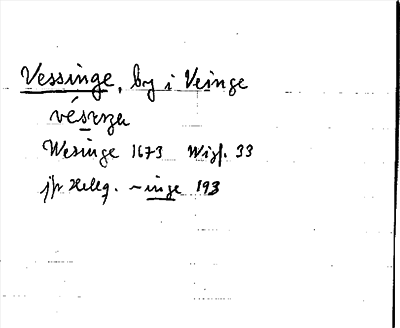 Vessinge, by i Veinge
Wesinge 1673 Wigf. 33
jfr Hellq. ~inge 193